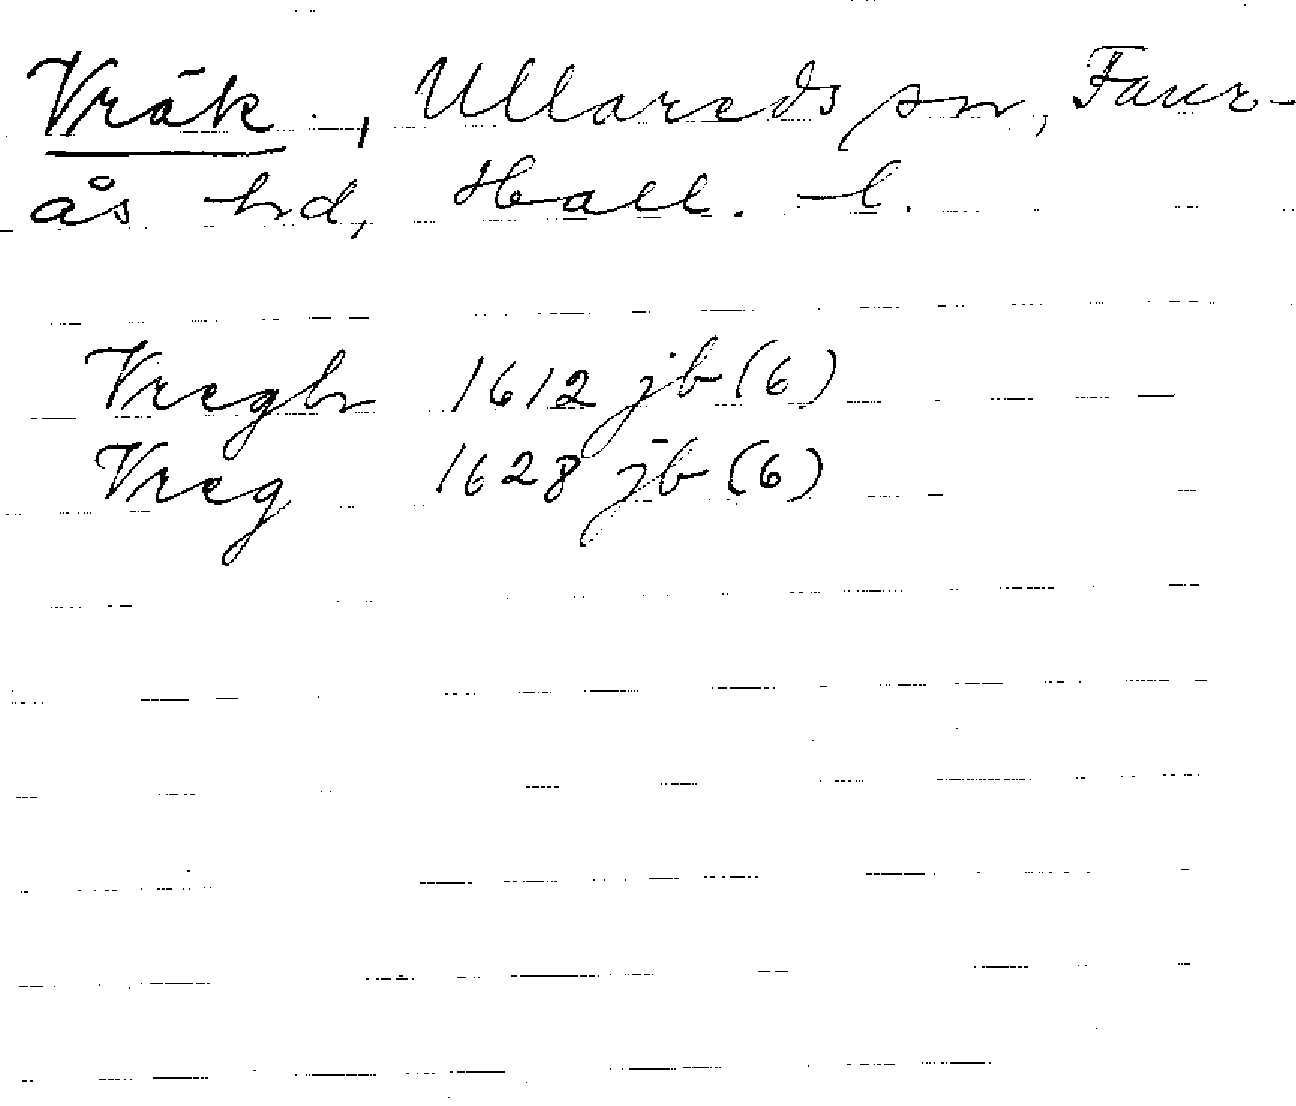 Vräk, Ullareds sn, Faur-
ås hd, Hall. l.
Vregh 1612 jb (6)
Vreg 1628 jb (6)